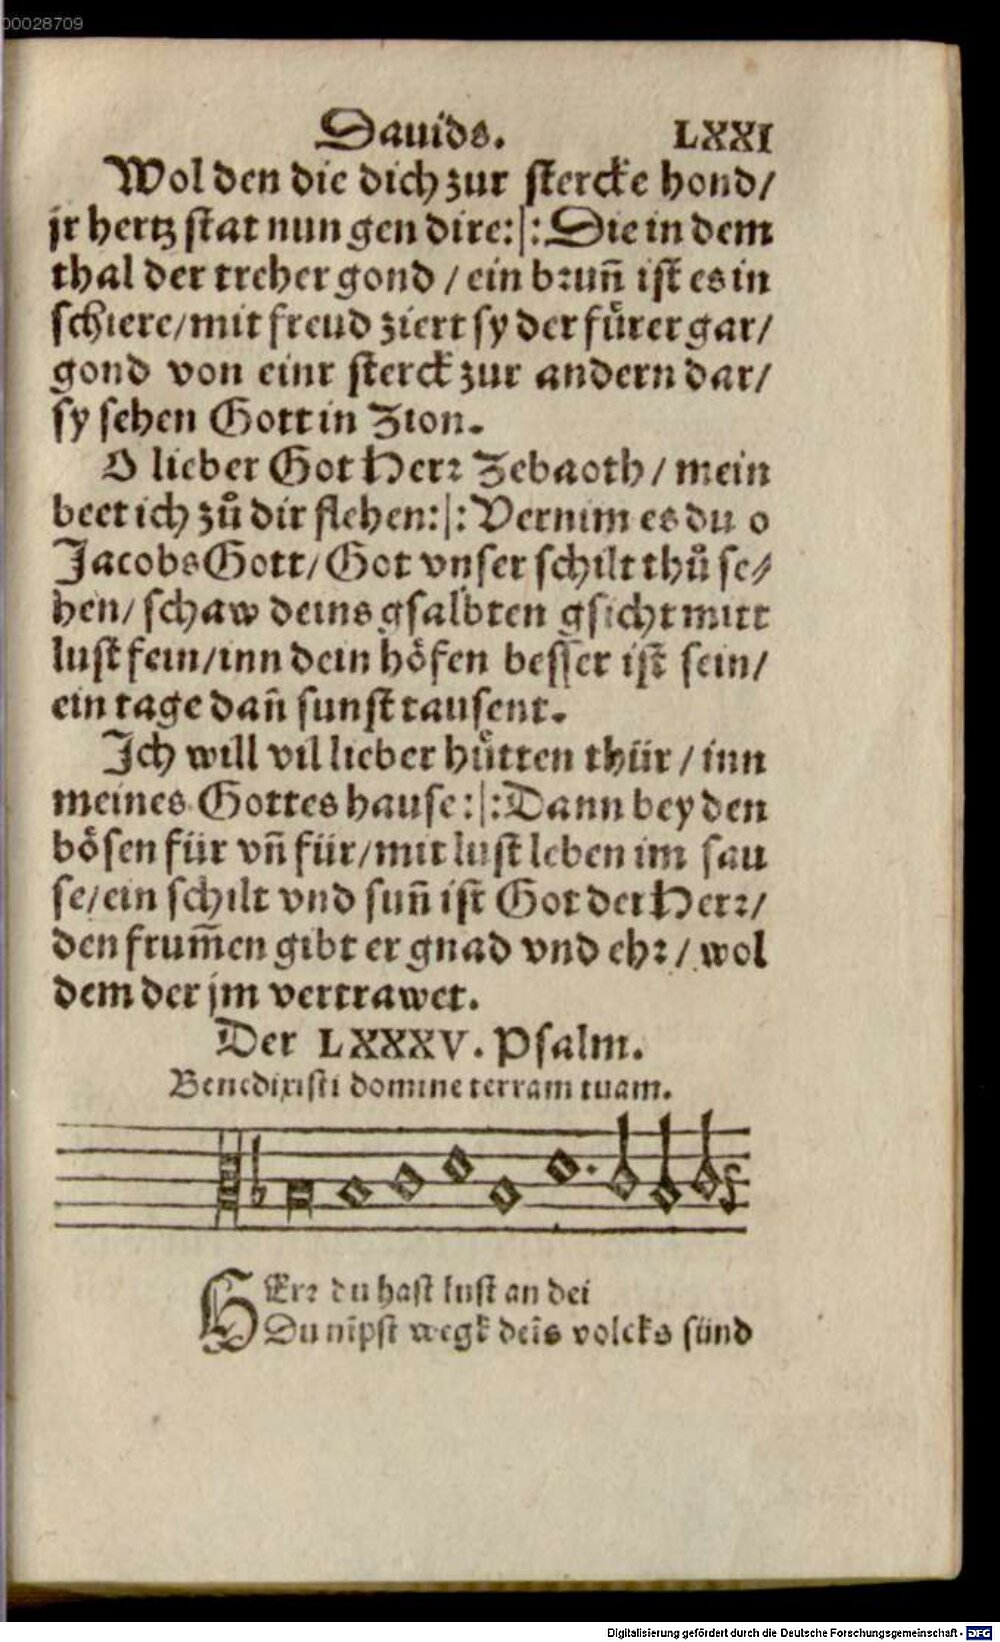 00028709
Dauids. LXXI
Wol den die dich zur stercke hond/
jr hertz stat nun gen dire:|:Die in dem
thal der treher gond / ein brun̄ ist es in
schiere/mit freud ziert sy der fürer gar/
gond von einr sterck zur andern dar/
sy sehen Gott in Zion.
O lieber Got Herr Zebaoth / mein
beet ich zů dir flehen:|:Vernim es du o
Jacobs Gott/ Got vnser schilt thů se⸗
hen/ schaw deins gsalbten gsicht mitt
lust fein/inn dein höfen besser ist sein/
ein tage dan̄ sunst tausent.
Ich will vil lieber hütten thür / inn
meines Gottes hause:|:Dann bey den
bösen für vn̄ für/mit lust leben im sau
se/ein schilt vnd sun̄ ist Got der Herr/
den frum̄en gibt er gnad vnd ehr / wol
dem der jm vertrawet.
Der LXXXV. Psalm.
Benedixisti domine terram tuam.
HErr du hast lust an dei
Du nĩpst wegk deĩs volcks sünd
Digitalisierung gefördert durch die Deutsche Forschungsgemeinschaft - DFG